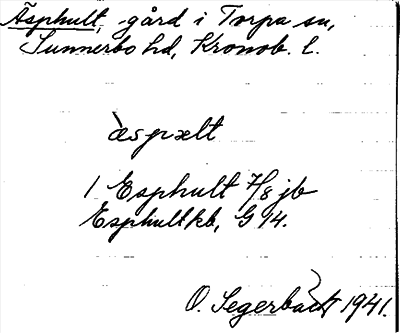 Äsphult, gård i Torpa sn,
Sunnerbo hd, Kronob. l.
æspælt
1 Esphult 7/8 jb
Esphult kb, G 14.
O. Segerbäck 1941.